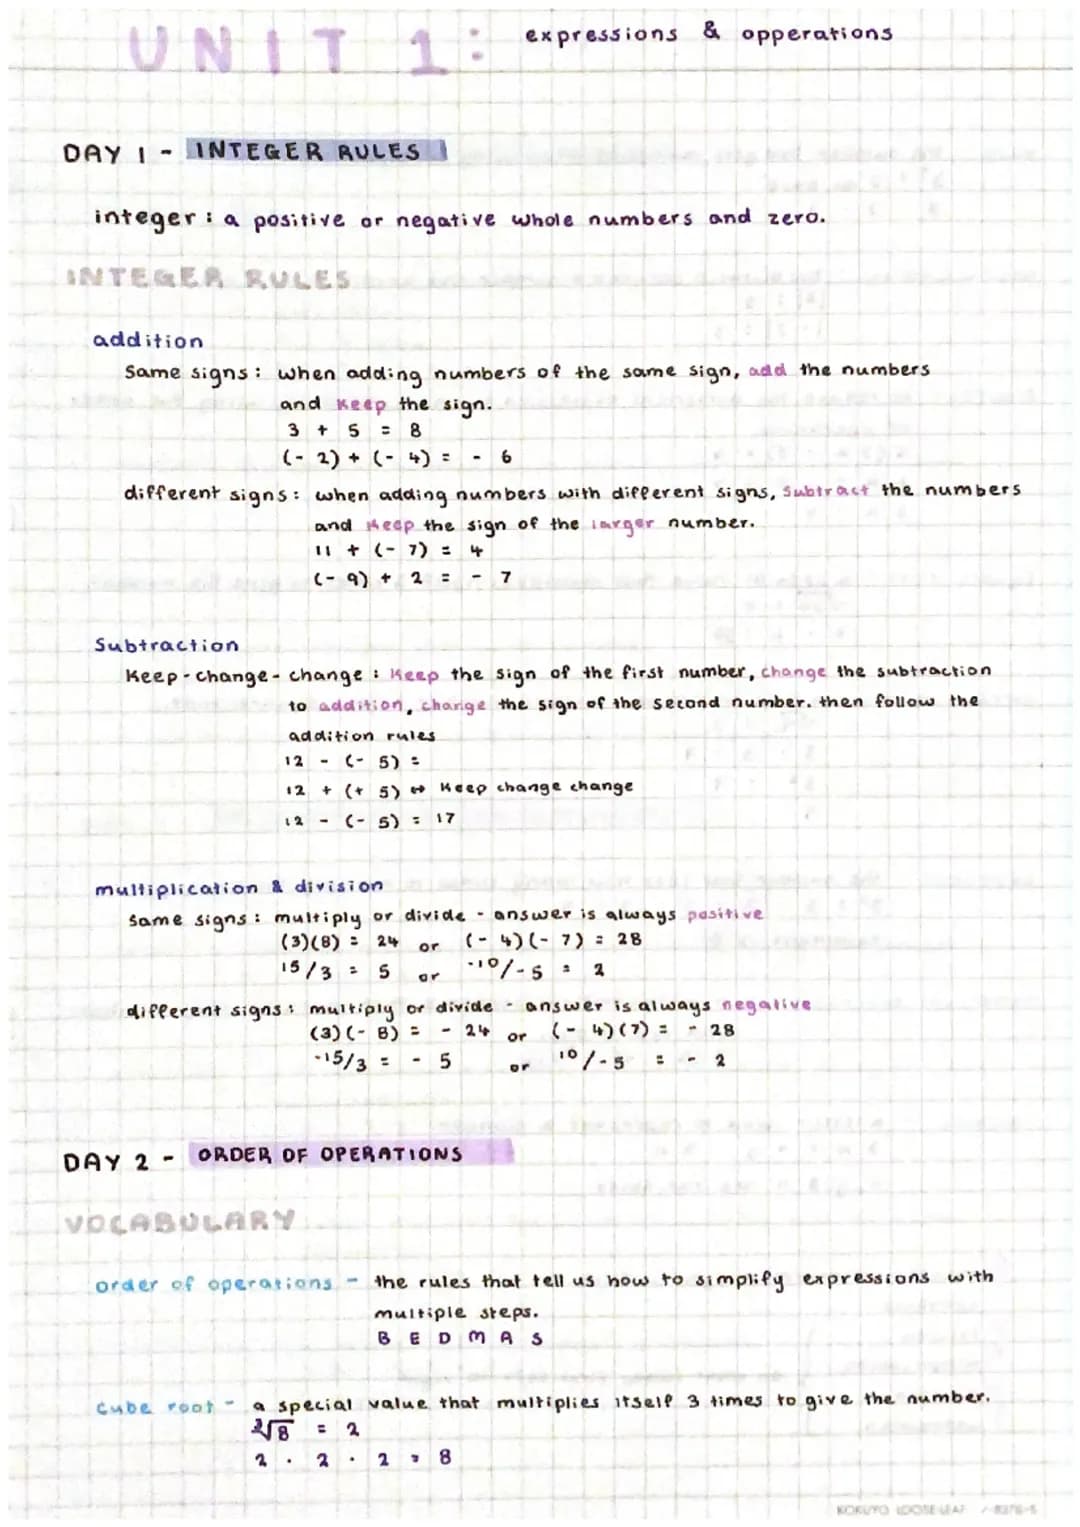 UNIT 1: expressions & opperations
DAY 1 - INTEGER RULES
integer : a positive or negative whole numbers and zero.
INTEGER RULES
addition
Same signs : when adding numbers of the same sign, add the numbers
and keep the sign.
3 + 5 = 8
(- 2) + (- 4) = - 6
different signs : when adding numbers with different signs, Subtract the numbers
and keep the sign of the larger number.
11 + (- 7) = 4
(- 9) + 2 = - 7
Subtraction
Keep - change - change : Keep the sign of the first number, change the subtraction
to addition, change the sign of the second number. then follow the
addition rules
12 - (- 5) =
12 + (+ 5) ↔ Keep change change
12 - (- 5) = 17
multiplication & division
Same signs : multiply or divide - answer is always positive
(3)(8) = 24 or (- 4)(- 7) = 28
15/3 = 5 or -10/-5 = 2
different signs : multiply or divide - answer is always negative
(3)(- 8) = - 24 or (- 4)(7) = - 28
-15/3 = - 5 or 10/-5 = - 2
DAY 2 - ORDER OF OPERATIONS
VOCABULARY
order of operations - the rules that tell us how to simplify expressions with
multiple steps.
B E D M A S
cube root - a special value that multiplies itself 3 times to give the number.
∛8 = 2
2 · 2 · 2 = 8
KOKUYO LOOSE-LEAF